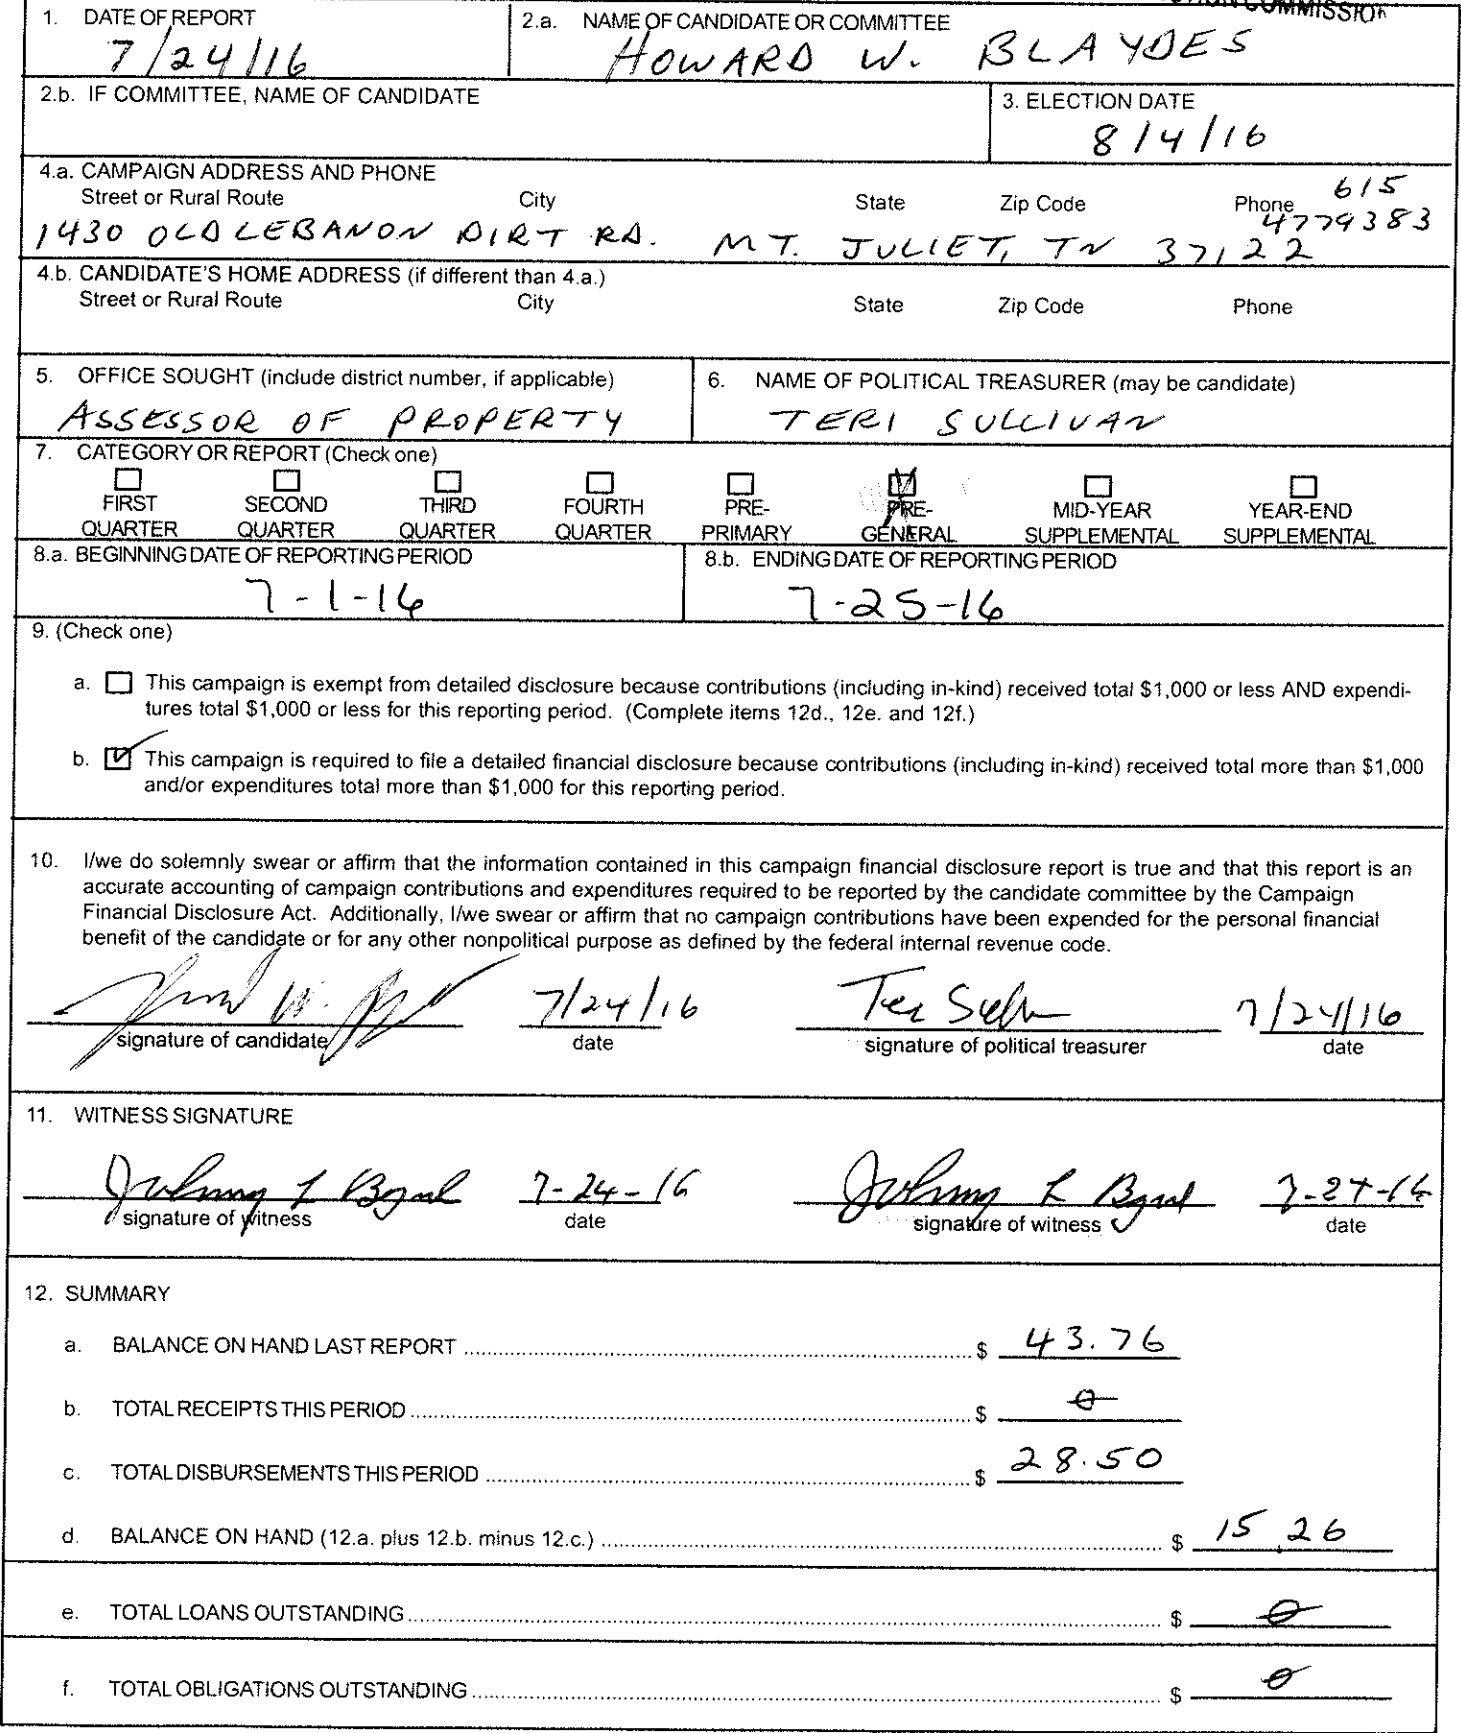 COMMISSION
1. DATE OF REPORT
7/24/16
2.a. NAME OF CANDIDATE OR COMMITTEE
HOWARD W. BLAYDES
2.b. IF COMMITTEE, NAME OF CANDIDATE
3. ELECTION DATE
8/4/16
4.a. CAMPAIGN ADDRESS AND PHONE
Street or Rural Route City State Zip Code Phone 615
4779383
1430 OLD LEBANON DIRT RD. MT. JULIET, TN 37122
4.b. CANDIDATE'S HOME ADDRESS (if different than 4.a.)
Street or Rural Route City State Zip Code Phone
5. OFFICE SOUGHT (include district number, if applicable)
ASSESSOR OF PROPERTY
6. NAME OF POLITICAL TREASURER (may be candidate)
TERI SULLIVAN
7. CATEGORY OR REPORT (Check one)
FIRST SECOND THIRD FOURTH PRE- PRE- MID-YEAR YEAR-END
QUARTER QUARTER QUARTER QUARTER PRIMARY GENERAL SUPPLEMENTAL SUPPLEMENTAL
8.a. BEGINNING DATE OF REPORTING PERIOD
7-1-16
8.b. ENDING DATE OF REPORTING PERIOD
7-25-16
9. (Check one)
a. This campaign is exempt from detailed disclosure because contributions (including in-kind) received total $1,000 or less AND expendi-
tures total $1,000 or less for this reporting period. (Complete items 12d., 12e. and 12f.)
b. This campaign is required to file a detailed financial disclosure because contributions (including in-kind) received total more than $1,000
and/or expenditures total more than $1,000 for this reporting period.
10. I/we do solemnly swear or affirm that the information contained in this campaign financial disclosure report is true and that this report is an
accurate accounting of campaign contributions and expenditures required to be reported by the candidate committee by the Campaign
Financial Disclosure Act. Additionally, I/we swear or affirm that no campaign contributions have been expended for the personal financial
benefit of the candidate or for any other nonpolitical purpose as defined by the federal internal revenue code.
7/24/16 7/24/16
signature of candidate date signature of political treasurer date
11. WITNESS SIGNATURE
Johnny L 7-24-16 Johnny L 7-24-16
signature of witness date signature of witness date
12. SUMMARY
a. BALANCE ON HAND LAST REPORT $ 43.76
b. TOTAL RECEIPTS THIS PERIOD $ 0
c. TOTAL DISBURSEMENTS THIS PERIOD $ 28.50
d. BALANCE ON HAND (12.a. plus 12.b. minus 12.c.) $ 15.26
e. TOTAL LOANS OUTSTANDING $ 0
f. TOTAL OBLIGATIONS OUTSTANDING $ 0